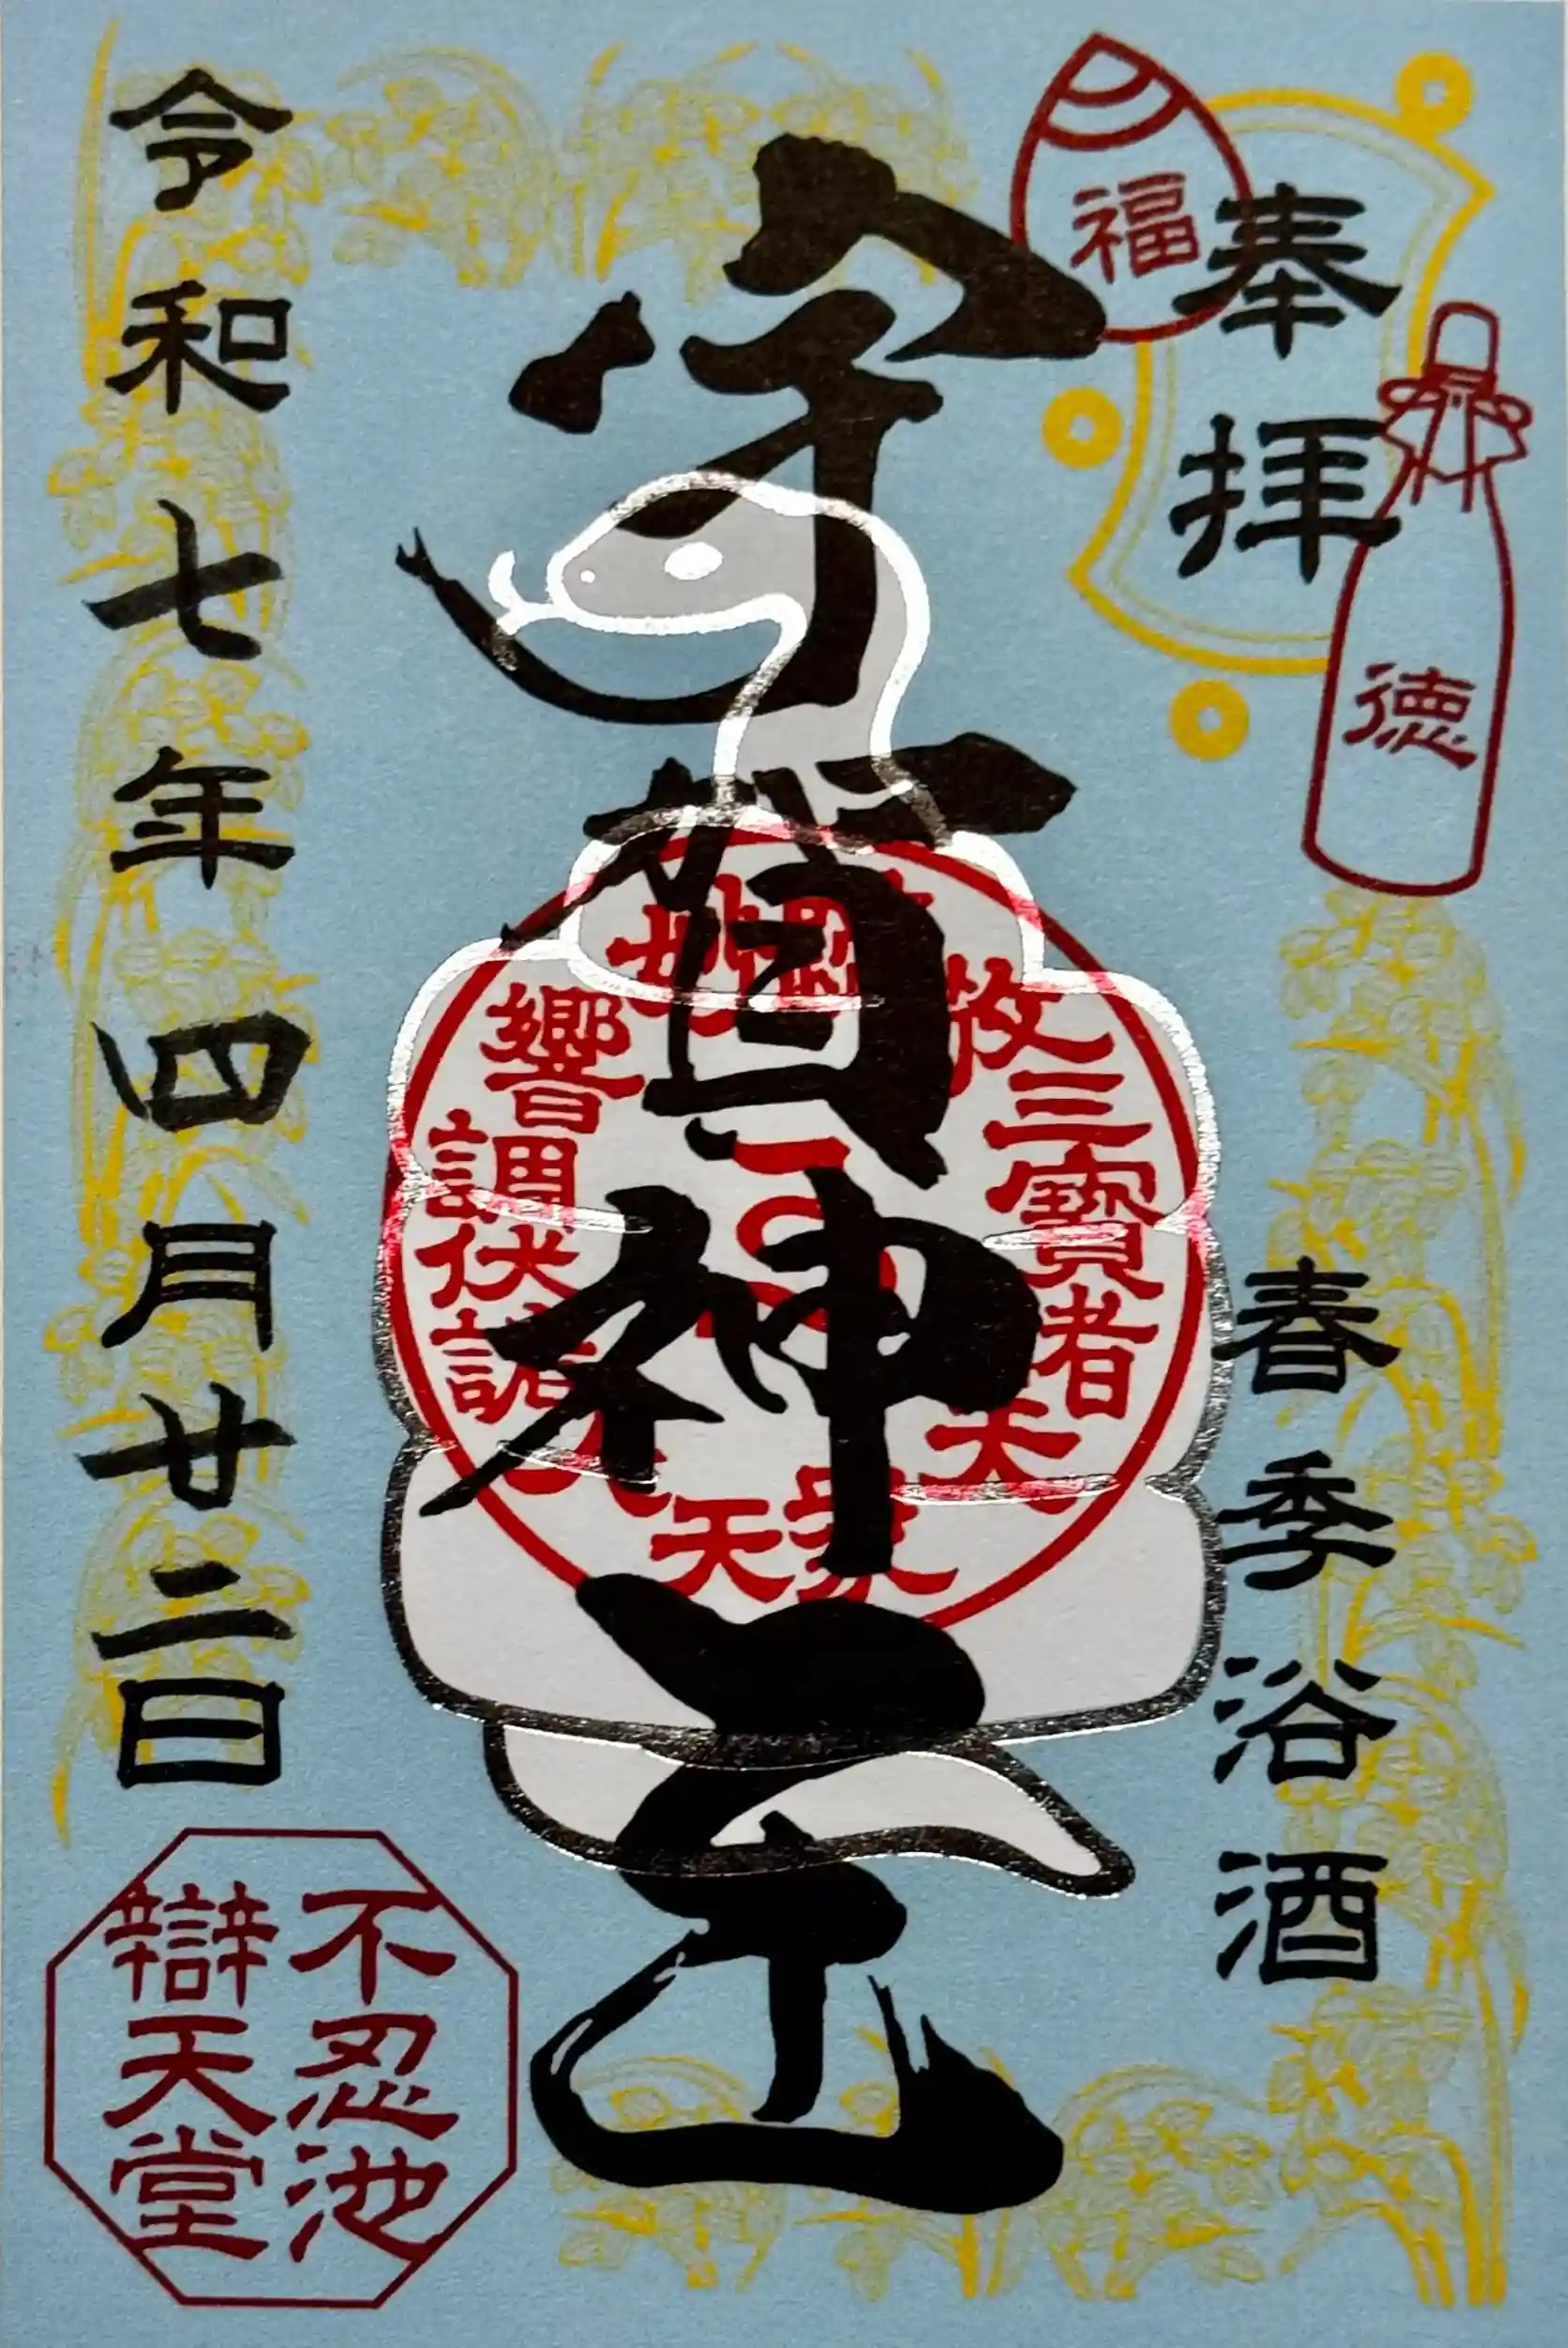 奉拝
福
徳
春季浴酒
宇賀神王
三寶者大衆天
響調伏
令和七年四月廿二日
不忍池
辯天堂